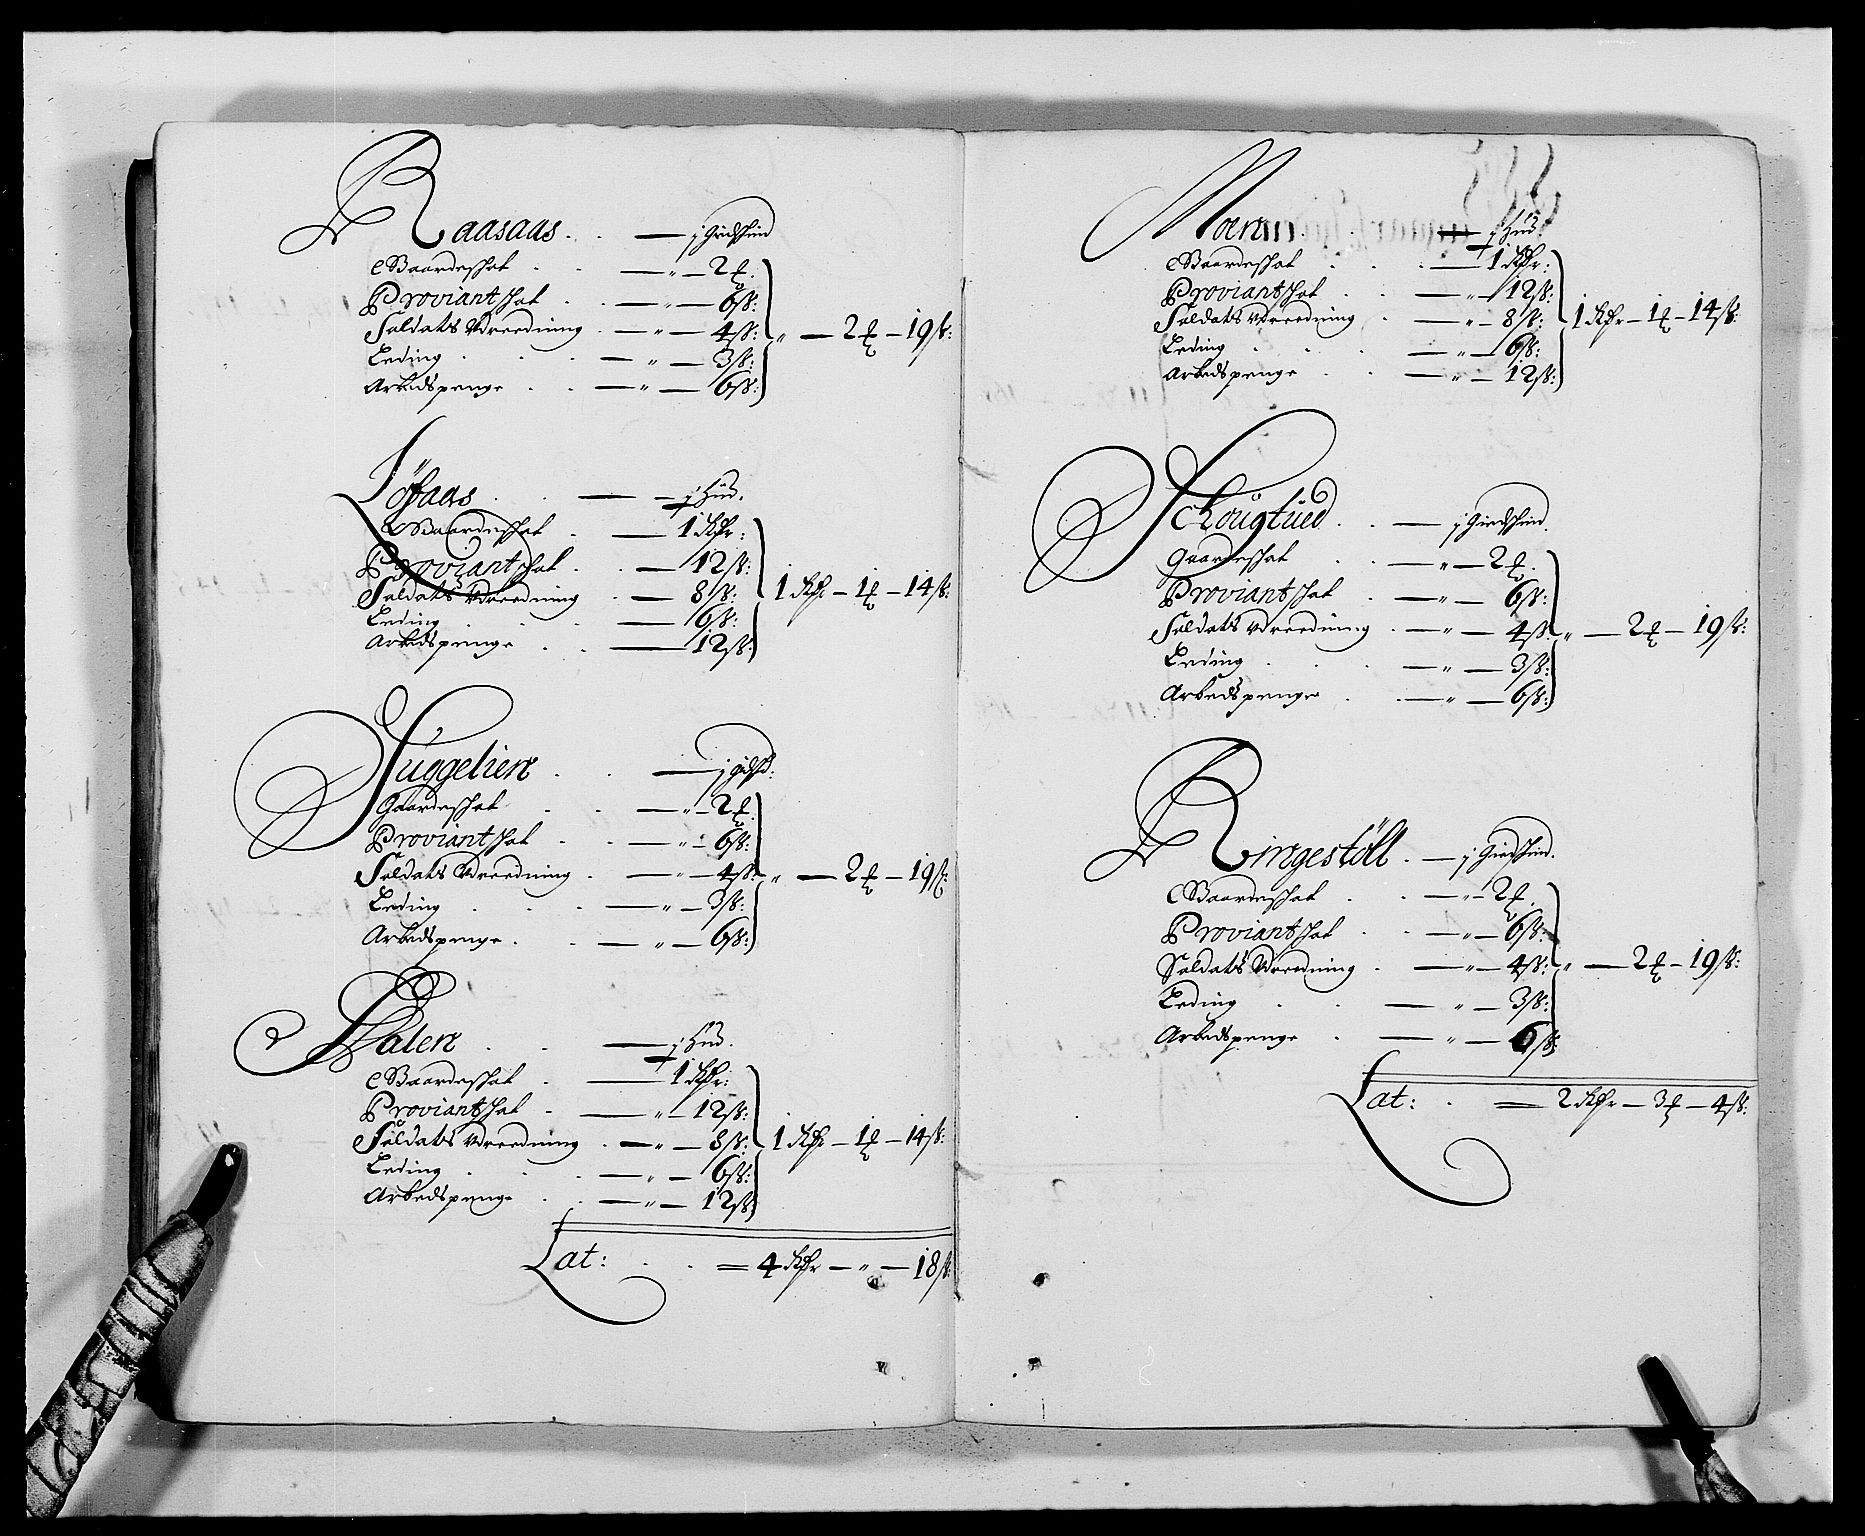 Raasaas. . — j Giedshind
Gaardeskat . . — " — 2 ₰.
Proviantskat . . — " — 6 ß:
Soldats Vdreedning . — " — 4 ß: " — 2 ₰ — 19 ß:
Leding . . . — " — 3 ß:
Arbedspenge . . — " — 6 ß:
Löfaas . . — j Hud.
Gaardeskat . — 1 Rdr:
Proviantskat . . — 12 ß:
Soldats Vdreedning . — 8 ß: 1 Rdr — 1 ₰ — 14 ß:
Leding . . . — 6 ß:
Arbedspenge . . — 12 ß:
Huggelien . . — j gidsh:
Gaardeskat . . — " — 2 ₰.
Proviantskat . . — " — 6 ß:
Soldats Vdreedning . — " — 4 ß: " — 2 ₰ — 19 ß:
Leding . . . — " — 3 ß:
Arbedspenge . . — " — 6 ß:
Dalen . . — j Hud.
Gaardeskat . — 1 Rdr:
Proviantskat . — " — 12 ß:
Soldats Vdreedning . — " — 8 ß: 1 Rdr — 1 ₰ — 14 ß:
Leding . . . — " — 6 ß:
Arbedspenge . . — " — 12 ß:
Lat: . . = 4 Rdr — " — 18 ß:
Moran . . — j Hud
Gaardeskat . . . — 1 Rdr:
Proviantskat . . — " — 12 ß:
Soldats Vdreedning . — " — 8 ß: 1 Rdr — 1 ₰ — 14 ß:
Leding . . . — " — 6 ß:
Arbedspenge . . — " — 12 ß:
Schougtued . . — j Giedshind.
Gaardeskat . . — " — 2 ₰.
Proviantskat . — " — 6 ß:
Soldats Vdreedning . — " — 4 ß: " — 2 ₰ — 19 ß:
Leding . . . — " — 3 ß:
Arbedspenge . . — " — 6 ß:
Ringestöll . — j Giedshind.
Gaardeskat . . — " — 2 ₰.
Proviantskat . . — " — 6 ß:
Soldats Vdreedning . — " — 4 ß: " — 2 ₰ — 19 ß:
Leding . . — " — 3 ß:
Arbedspenge . — " — 6 ß:
Lat: . = 2 Rdr — 3 ₰ — 4 ß: